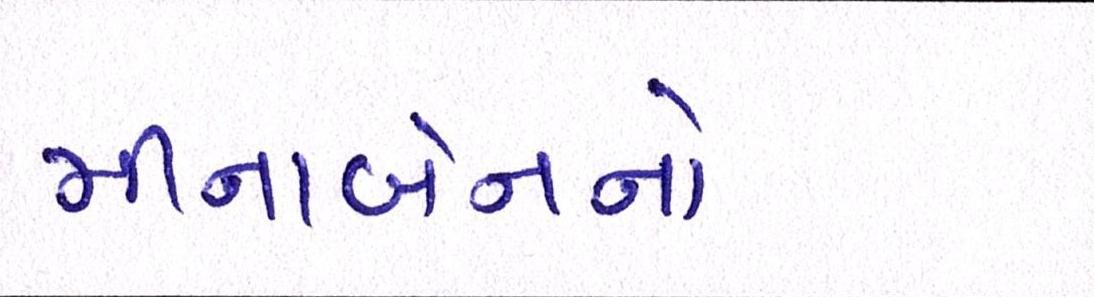 મીનાબેનનો